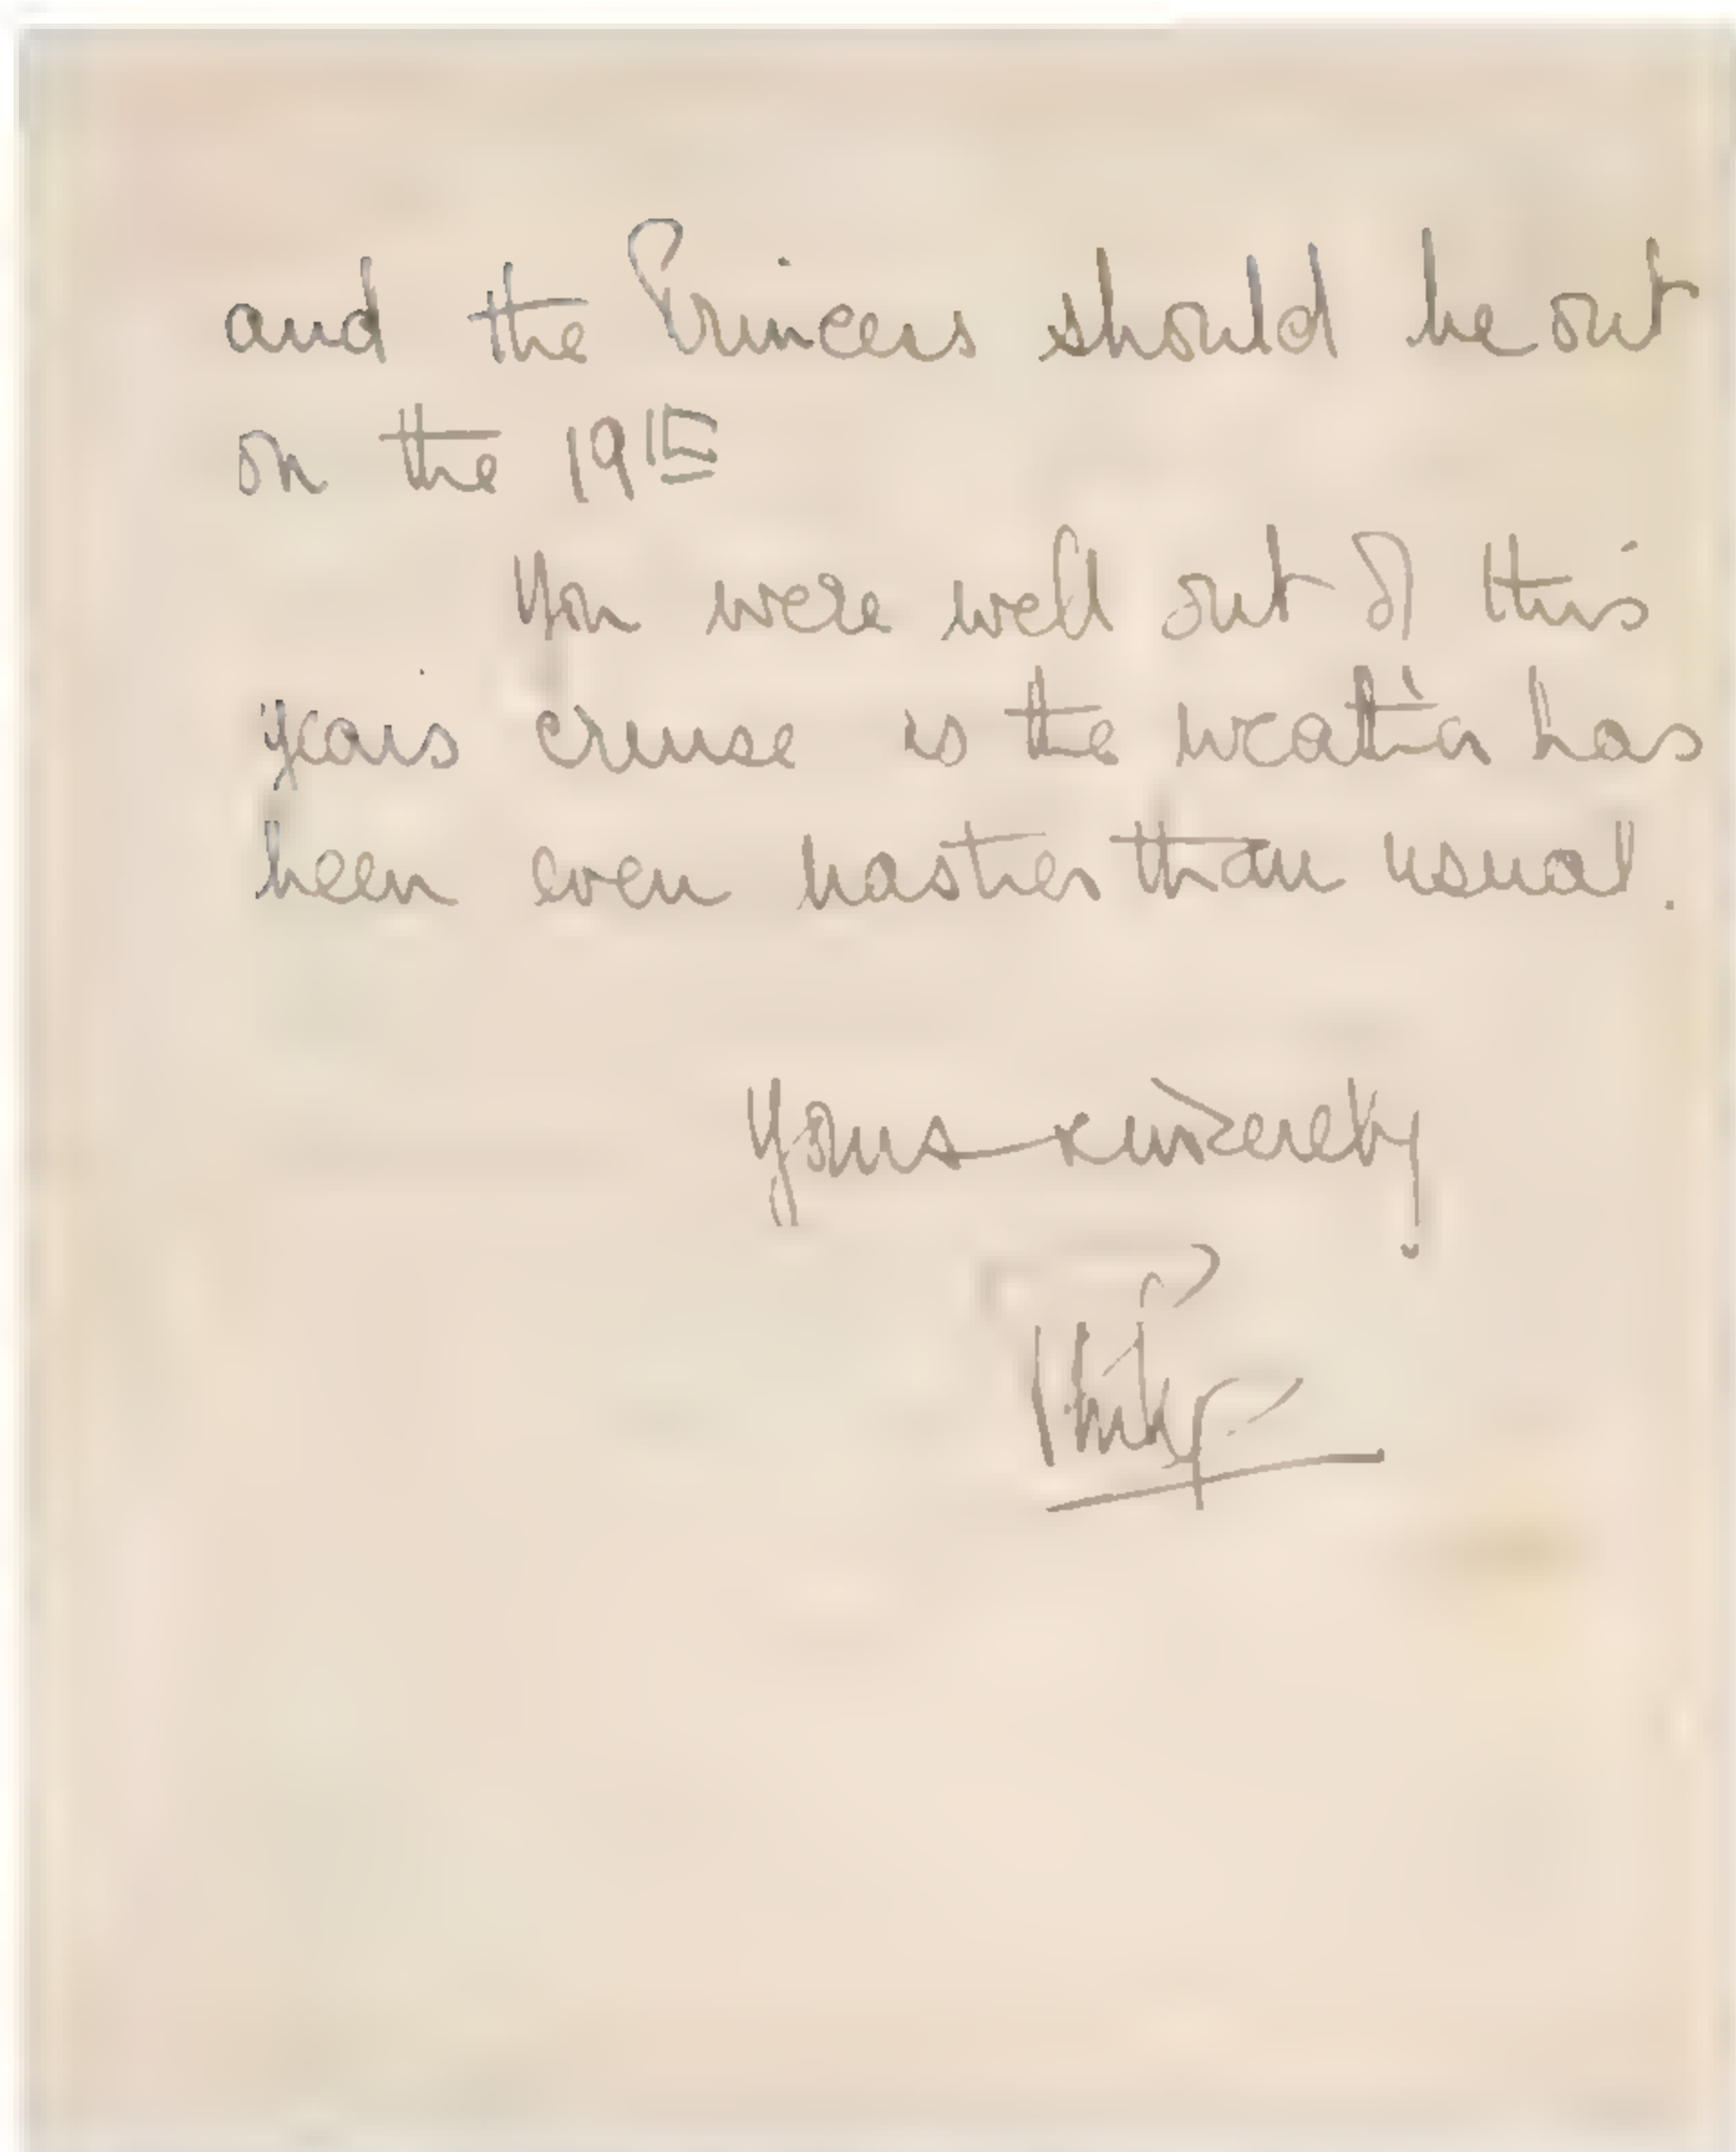 and the Princess should be out
on the 19th
You were well out of this
years cruise as the weather has
been even nastier than usual.
Yours sincerely
Philip